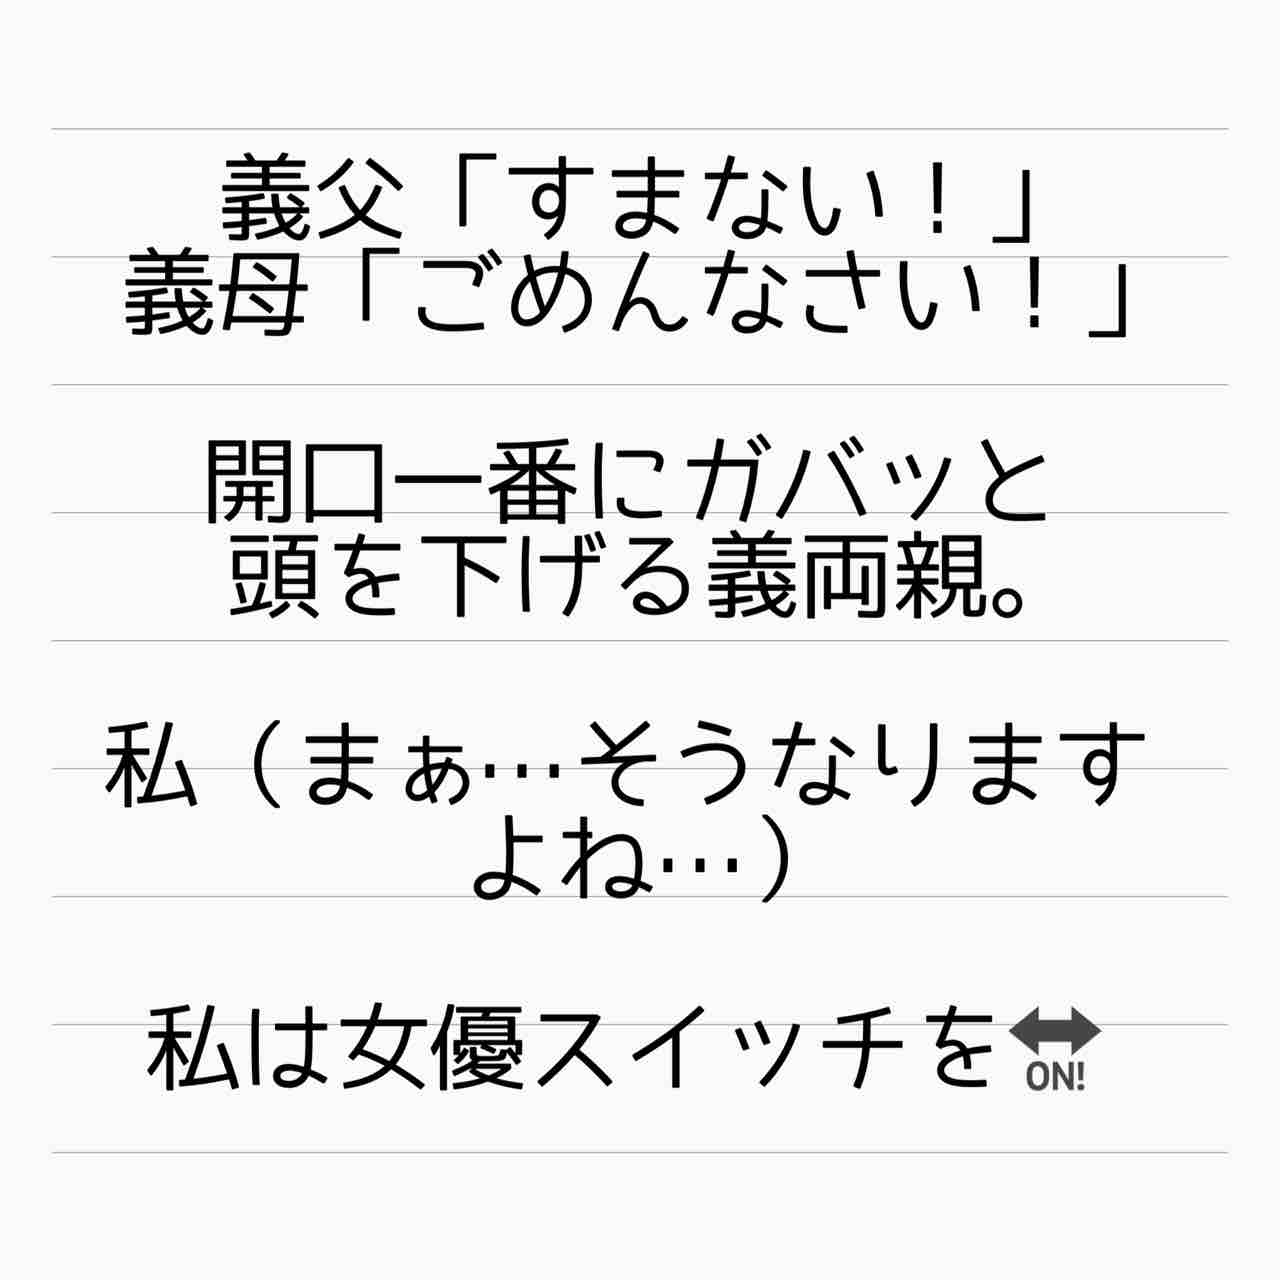 義父「すまない！」
義母「ごめんなさい！」
開口一番にガバッと
頭を下げる義両親。
私（まぁ…そうなります
よね…）
私は女優スイッチを🔛